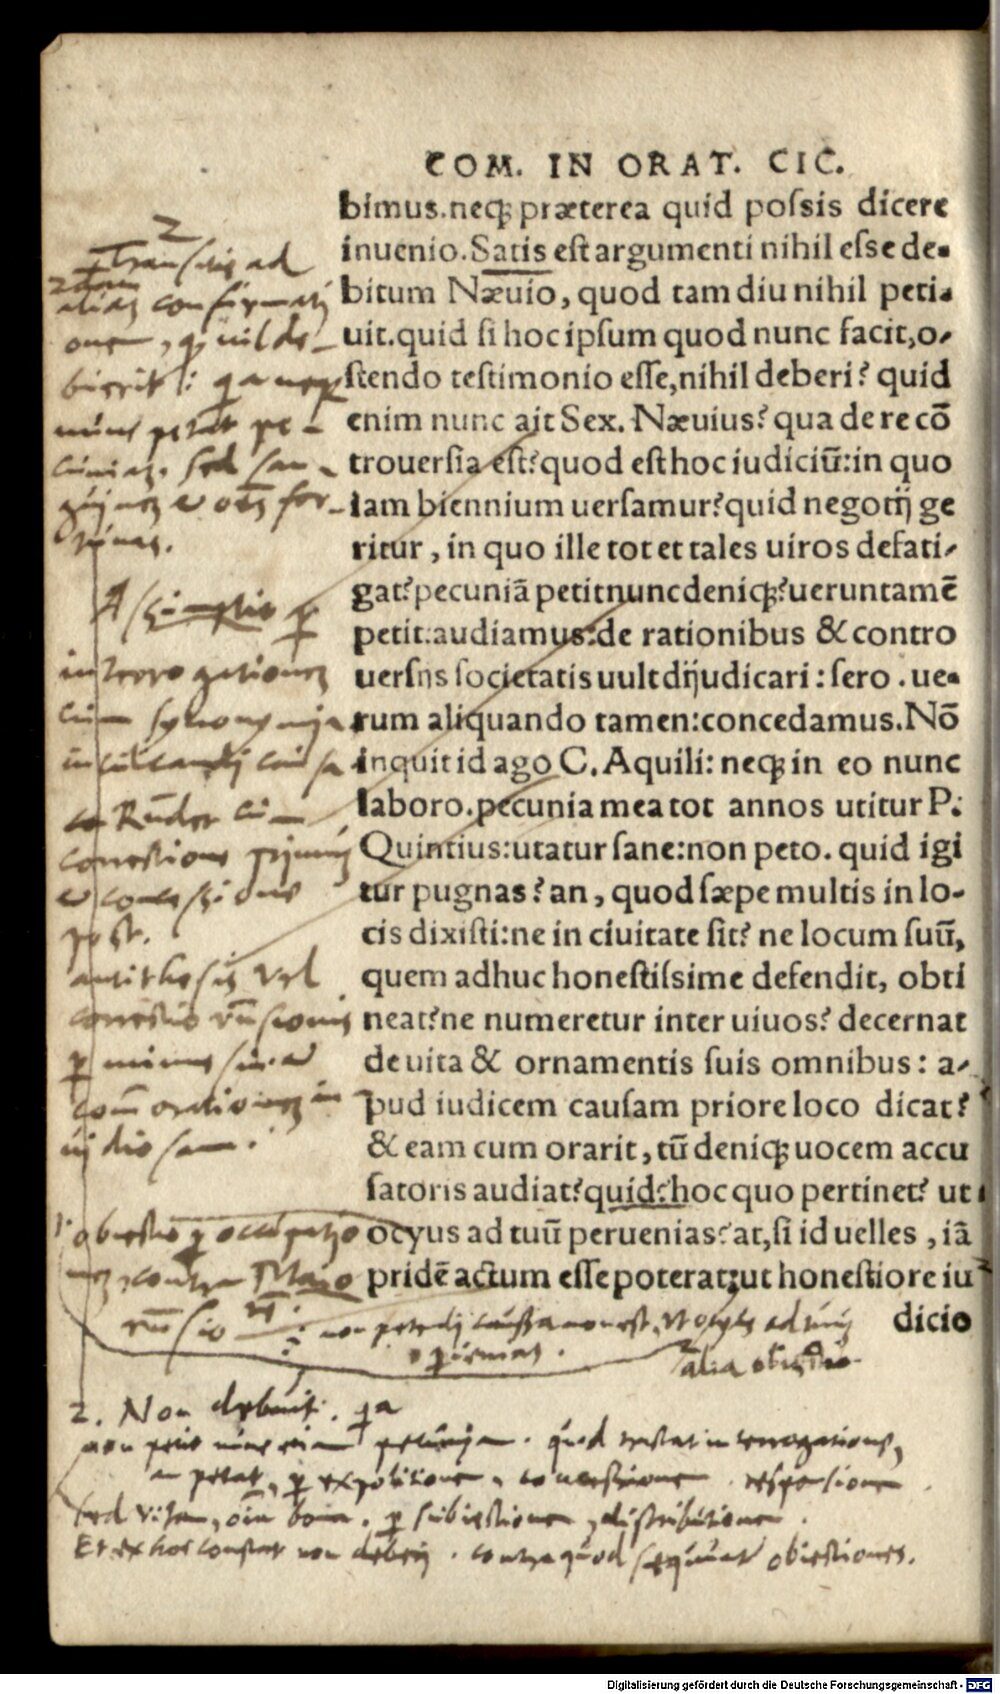 COM. IN ORAT. CIC.
bimus.neq; præterea quid possis dicere
inuenio. Satis est argumenti nihil esse de-
bitum Næuio, quod tam diu nihil peti-
uit. quid si hoc ipsum quod nunc facit, o-
stendo testimonio esse, nihil deberi? quid
enim nunc ait Sex. Næuius? qua de re cõ
trouersia est? quod est hoc iudiciũ: in quo
iam biennium uersamur? quid negotij ge
ritur, in quo ille tot et tales uiros defati-
gat? pecuniã petit nunc deniq;? ueruntamẽ
petit. audiamus: de rationibus & contro
uersijs societatis uult dijudicari: sero. ue-
rum aliquando tamen: concedamus. Nõ
inquit id ago C. Aquili: neq; in eo nunc
laboro. pecunia mea tot annos utitur P.
Quintius: utatur sane: non peto. quid igi
tur pugnas? an, quod sæpe multis in lo-
cis dixisti: ne in ciuitate sit? ne locum suũ,
quem adhuc honestissime defendit, obti
neat? ne numeretur inter uiuos? decernat
de uita & ornamentis suis omnibus: a-
pud iudicem causam priore loco dicat?
& eam cum orarit, tũ deniq; uocem accu
satoris audiat? quid? hoc quo pertinet? ut
ocyus ad tuũ peruenias? at, si id uelles, iã
pridẽ actum esse poterat; ut honestiore iu
dicio
2
Transitio ad
interrogationem
antithesis vel
2. Non debuit. qa
non petit nunc etiam pecuniam. quod tractat interrogatione,
an petat, p expolitione, concessione. responsione
sed vitam, oĩa bona. p subiectione, distributione.
Et ex hoc constat non deberi. contra quod sequuntur obiectiones.
Digitalisierung gefördert durch die Deutsche Forschungsgemeinschaft - DFG